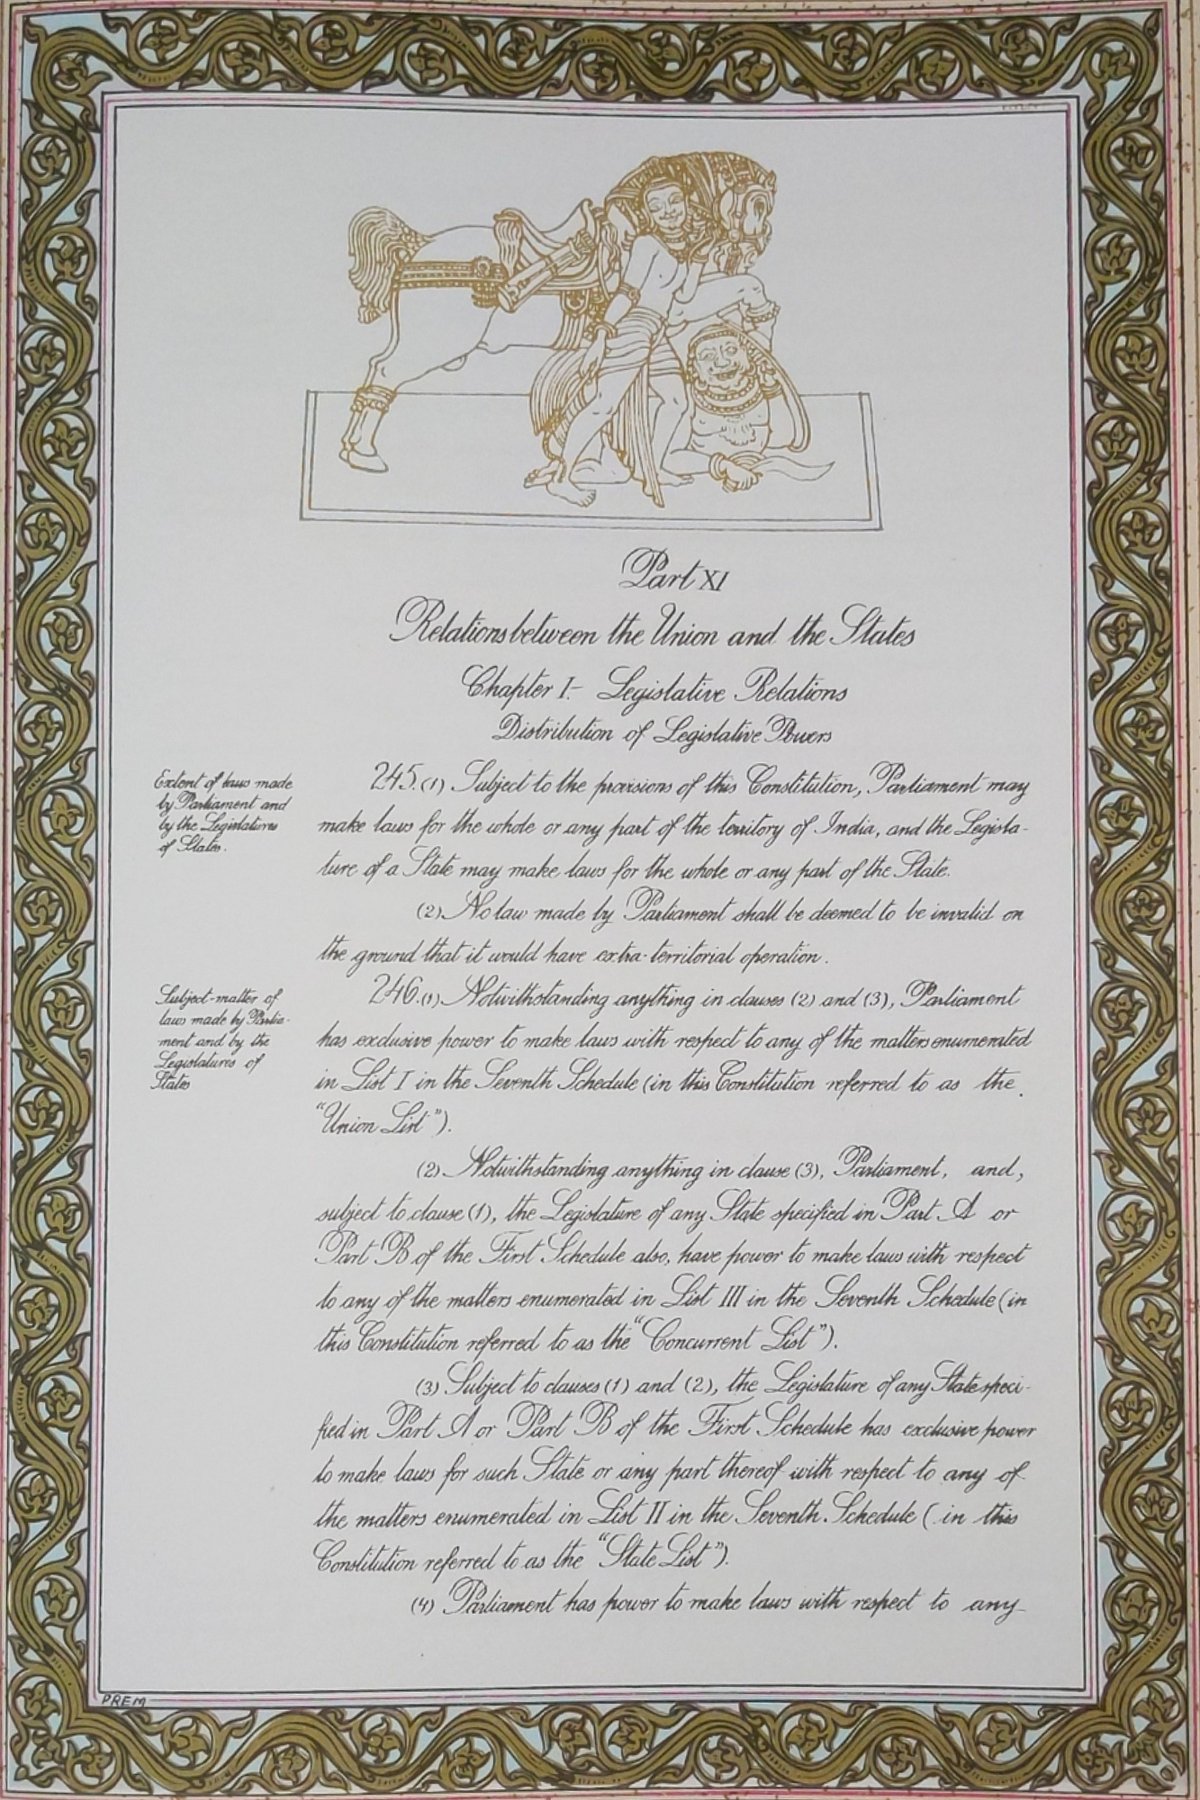 Part XI
Relations between the Union and the States
Chapter I.- Legislative Relations
Distribution of Legislative Powers
Extent of laws made
by Parliament and
by the Legislatures
of States.
245.(1) Subject to the provisions of this Constitution, Parliament may
make laws for the whole or any part of the territory of India, and the Legisla-
ture of a State may make laws for the whole or any part of the State.
(2) No law made by Parliament shall be deemed to be invalid on
the ground that it would have extra-territorial operation.
Subject-matter of
laws made by Parlia-
ment and by the
Legislatures of
States
246.(1) Notwithstanding anything in clauses (2) and (3), Parliament
has exclusive power to make laws with respect to any of the matters enumerated
in List I in the Seventh Schedule (in this Constitution referred to as the
"Union List").
(2) Notwithstanding anything in clause (3), Parliament, and,
subject to clause (1), the Legislature of any State specified in Part A or
Part B of the First Schedule also, have power to make laws with respect
to any of the matters enumerated in List III in the Seventh Schedule (in
this Constitution referred to as the "Concurrent List").
(3) Subject to clauses (1) and (2), the Legislature of any State speci-
fied in Part A or Part B of the First Schedule has exclusive power
to make laws for such State or any part thereof with respect to any of
the matters enumerated in List II in the Seventh Schedule (in this
Constitution referred to as the "State List").
(4) Parliament has power to make laws with respect to any
PREM